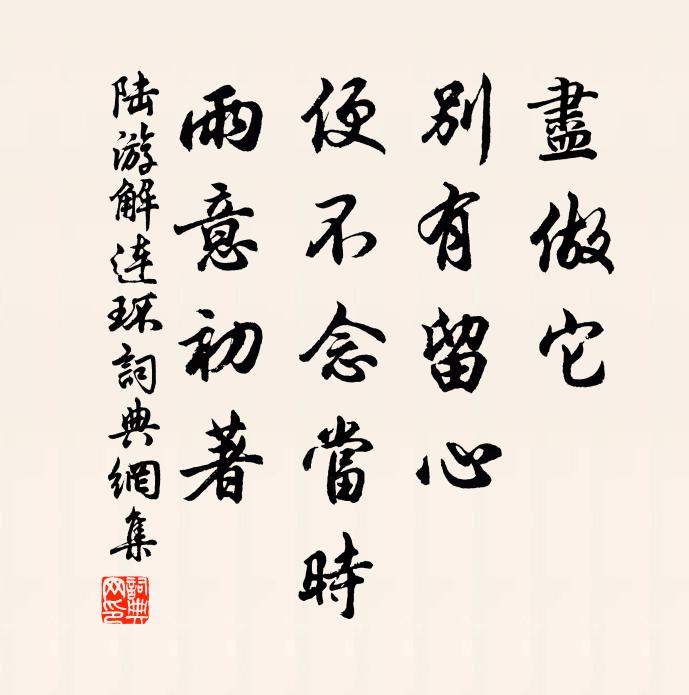 盡做它
別有留心
便不念當時
雨意初著
陆游解连环詞典網集
詞典网印